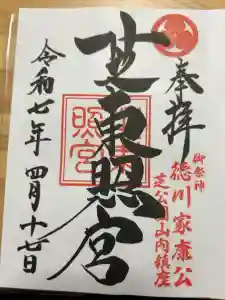 奉拝
御祭神
徳川家康公
芝公園山内鎮座
芝東照宮
東照宮
令和七年四月十七日